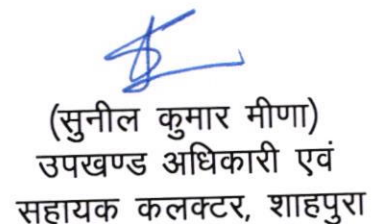 (सुनील कुमार मीणा)
उपखण्ड अधिकारी एवं
सहायक कलक्टर, शाहपुरा